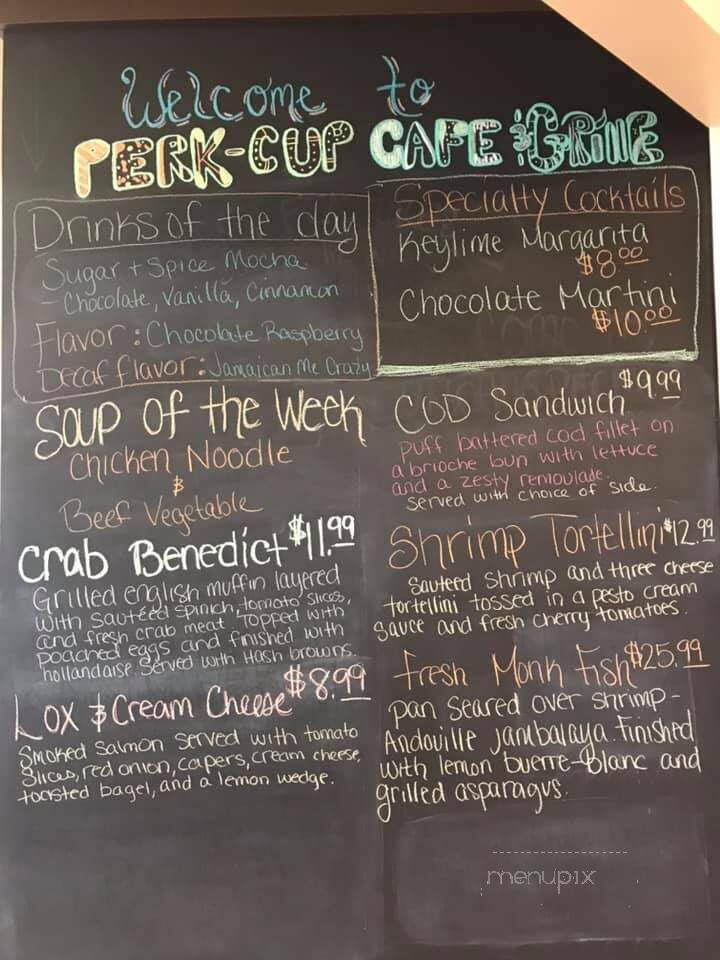 Welcome to
PERK-CUP CAFE & GRILLE
Drinks of the day
Sugar + Spice Mocha
- Chocolate, Vanilla, Cinnamon
Flavor: Chocolate Raspberry
Decaf flavor: Jamaican Me Crazy
Specialty Cocktails
Keylime Margarita
$8.00
Chocolate Martini
$10.00
Soup of the Week
Chicken Noodle
&
Beef Vegetable
Crab Benedict $11.99
Grilled english muffin layered
with sautéed spinich, tomato slices,
and fresh crab meat. Topped with
poached eggs and finished with
hollandaise served with Hash browns.
Lox & Cream Cheese $8.99
Smoked Salmon served with tomato
slices, red onion, capers, cream cheese,
toasted bagel, and a lemon wedge.
COD Sandwich $9.99
Puff battered cod fillet on
a brioche bun with lettuce
and a zesty remoulade.
Served with choice of side.
Shrimp Tortellini $12.99
Sauteed shrimp and three cheese
tortellini tossed in a pesto cream
sauce and fresh cherry tomatoes.
Fresh Monk Fish $25.99
pan seared over shrimp-
Andouille jambalaya. Finished
with lemon buerre-Blanc and
grilled asparagus.
menupix